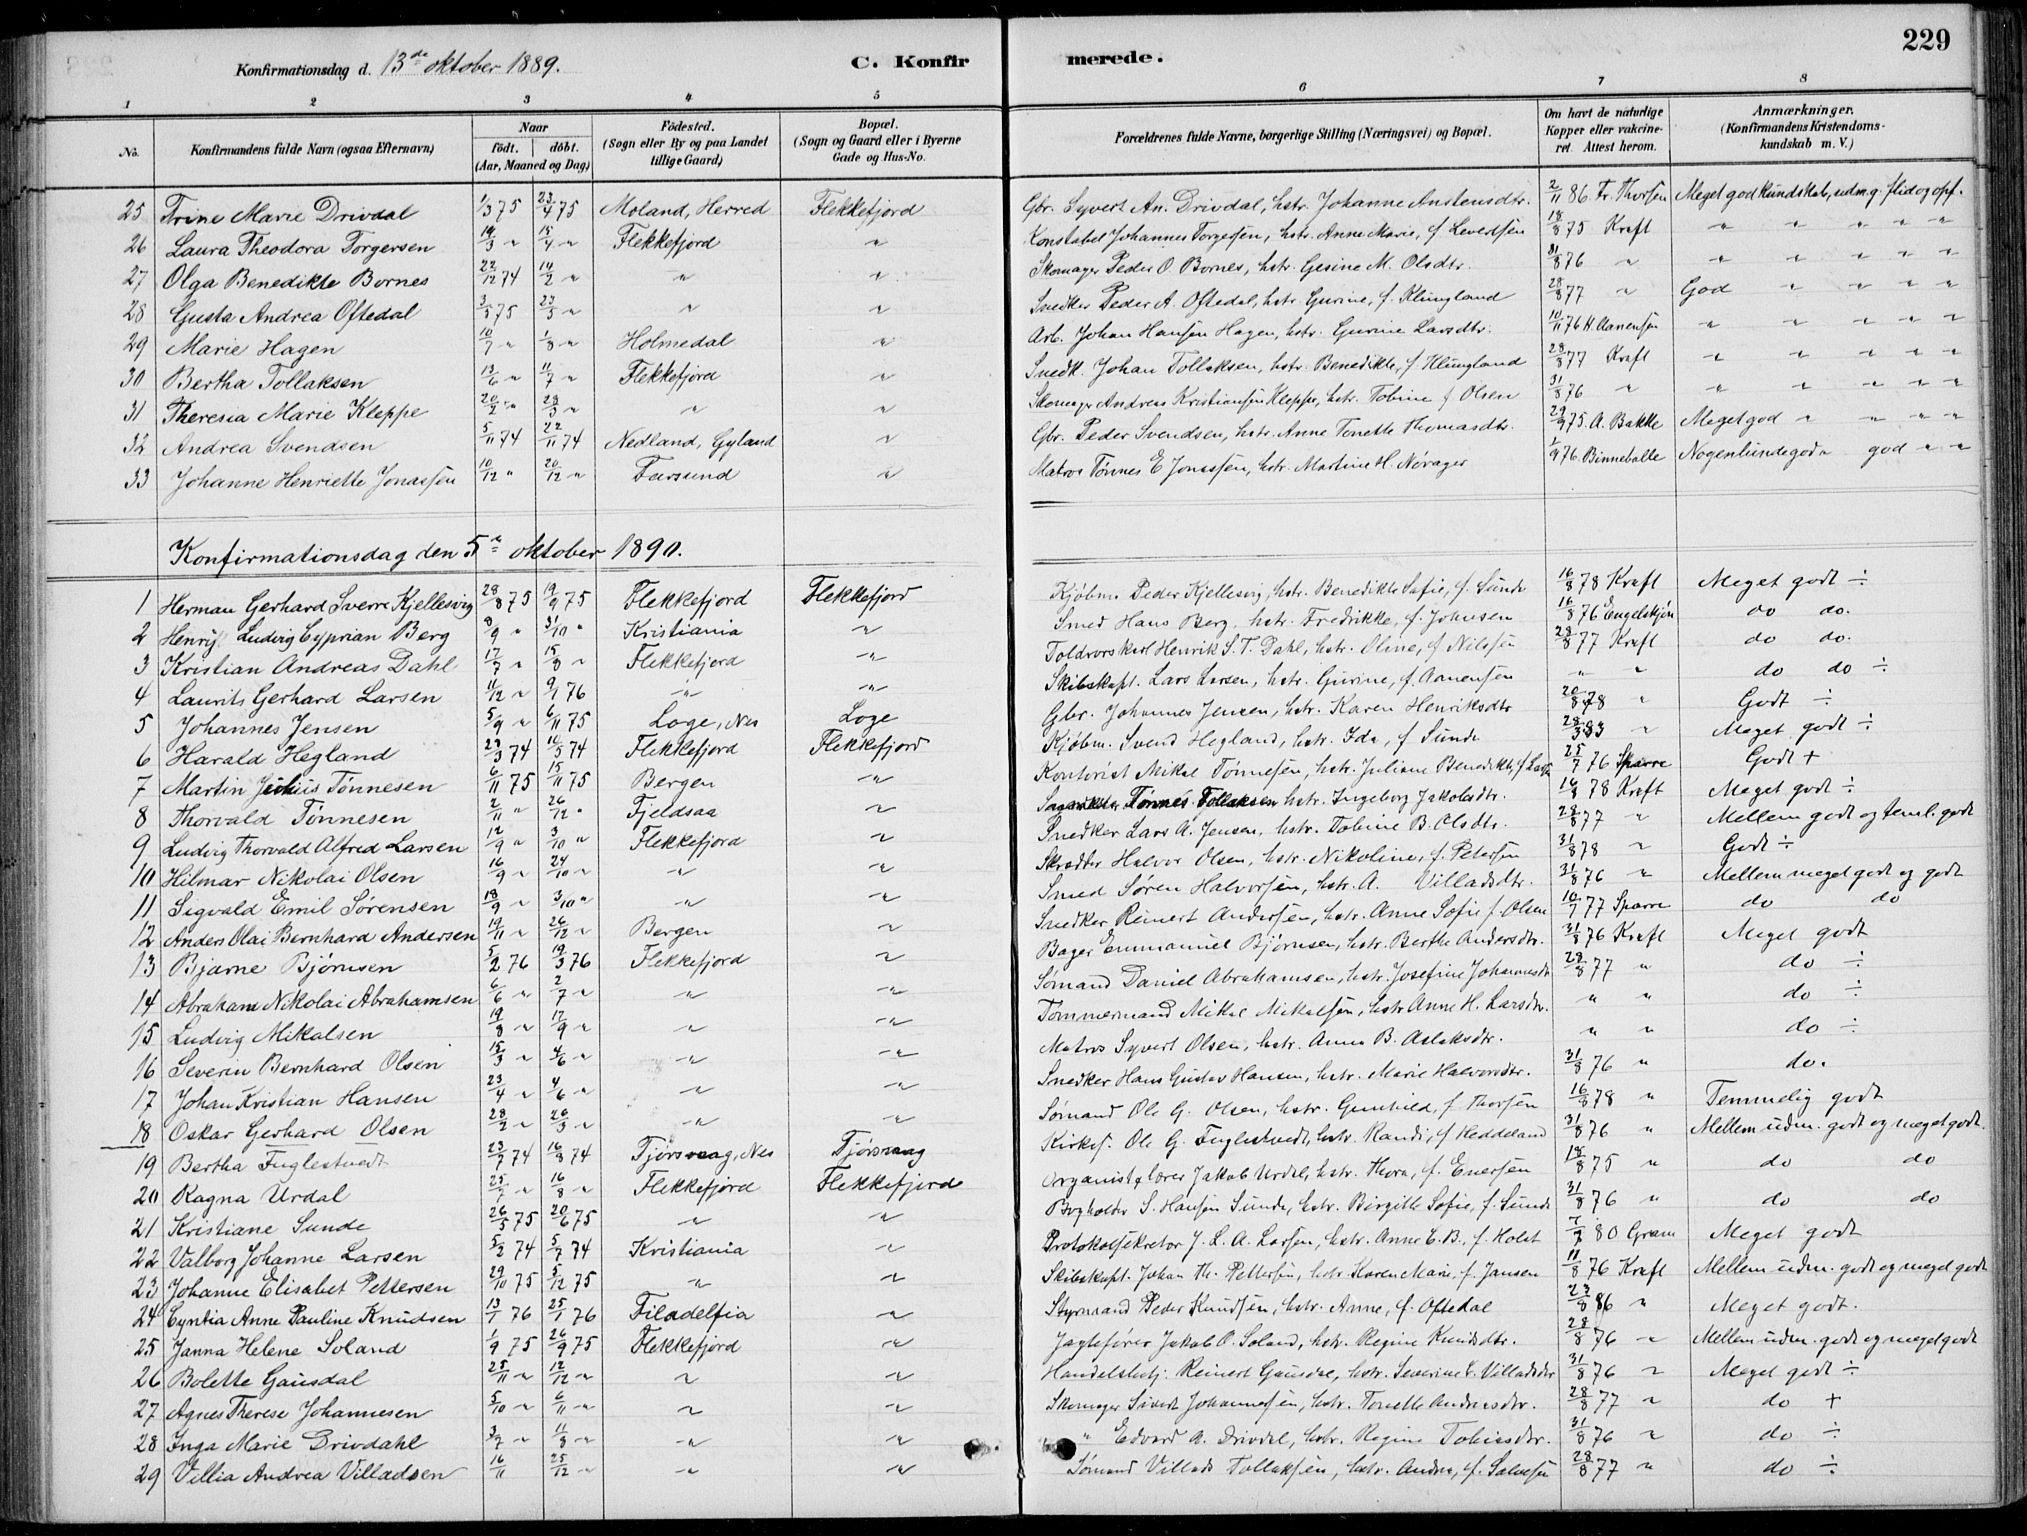 229
Konfirmationsdag d. 13de oktober 1889. C. Konfirmerede.
1 2 3 4 5 6 7 8
No. Konfirmandens fulde Navn (ogsaa Efternavn) Naar født. døbt. (Aar, Maaned og Dag) Fødested. (Sogn eller By og paa Landet tillige Gaard) Bopæl. (Sogn og Gaard eller i Byerne Gade og Hus-No. Forældrenes fulde Navne, borgerlige Stilling (Næringsvei) og Bopæl. Om havt de naturlige Kopper eller vakcineret. Attest herom. Anmærkninger. (Konfirmandens Kristendomskundskab m. V.)
25 Trine Marie Drivdal 1/3 75 23/4 75 Moland, Herred Flekkefjord Gbr. Syvert An. Drivdal, hstr. Johanne Anstensdtr. 2/11 86 Fr. Thorsen Meget god Kundskab, udm.g. flid og opf.
26 Laura Theodora Torgersen 19/3 " 15/4 " Flekkefjord " Konstabel Johannes Torgersen, hstr. Anne Marie, f. Levertsen 18/8 75 Kraft " " " " "
27 Olga Benedikte Bornes 22/12 74 14/2 " " " Skomager Peder O. Bornes, hstr. Gesine M. Olsdtr. 31/8 76 " " " " " "
28 Gusta Andrea Oftedal 3/3 75 23/5 " " " Snedker Peder A. Oftedal, hstr. Gurine, f. Klungland 28/8 77 " God " " " "
29 Marie Hagen 10/7 " 1/8 " Holmedal " Arb. Johan Hansen Hagen, hstr. Gurine Larsdtr. 10/11 76 H. Aanensen " " " " "
30 Bertha Tollaksen 13/6 " 11/7 " Flekkefjord " Snedk. Johan Tollaksen, hstr. Benedikte, f. Klungland 28/8 77 Kraft " " " " "
31 Theresia Marie Kleppe 20/2 " 28/3 " " " Skomager Andreas Kristiansen Kleppe, hstr. Tobine f. Olsen 31/8 76 " " " " " "
32 Andrea Svendsen 5/11 74 22/11 74 Nedland, Gyland " Gbr. Peder Svendsen, hstr. Anne Tonette Thomasdtr. 29/9 75. A. Bakke Meget god " " " "
33 Johanne Henriette Jonassen 10/12 " 20/12 " Farsund " Matros Tønnes E. Jonassen, hstr. Martine H. Nórager 1/9 76. Binneballe Nogenlunde god " god " "
Konfirmationsdag den 5te oktober 1890.
1 Herman Gerhard Sverre Kjellesvig 28/8 75 19/9 75 Flekkefjord Flekkefjord Kjøbm. Peder Kjellesvig, hstr. Benedikte Sofie, f. Sunde 16/8 78 Kraft Meget godt ÷
2 Henry Ludvig Cyprian Berg 8/9 " 31/10 " Kristiania " Smed Hans Berg, hstr. Fredrikke, f. Johnsen 16/8 76 Engelskjøn do do.
3 Kristian Andreas Dahl 17/7 " 15/8 " Flekkefjord " Toldvorskarl Henrik S. T. Dahl, hstr. Oline, f. Nilssen 28/8 77 Kraft do do.
4 Laurits Gerhard Larsen 11/12 " 9/1 76 " " Skibskapt. Lars Larsen, hstr. Gurine, f. Aanensen " " do do ÷
5 Johannes Jensen 5/9 " 6/11 75 Loge, Nes Loge Gbr. Johannes Jensen, hstr. Karen Henriksdtr 20/8 78 " Godt ÷
6 Harald Hegland 23/3 74 10/5 74 Flekkefjord Flekkefjord Kjøbm. Svend Hegland, hstr. Ida, f. Sunde 28/3 83 " Meget godt ÷
7 Martin Julius Tønnesen 6/11 75 15/11 75 Bergen " Kontorist Mikal Tønnesen, hstr. Juliane Benedikte, f. 25/7 76 Sparre Godt +
8 Thorvald Tønnesen 2/11 " 26/12 " Fjeldsaa " Tønnes Tollaksen hstr. Ingeborg Jakobsdtr. 16/8 78 Kraft Meget godt ÷
9 Ludvig Thorvald Alfred Larsen 12/9 " 3/10 " Flekkefjord " Snedker Lars A. Jensen, hstr. Tobine B. Olsdtr. 28/8 77 " Mellem godt og teml. godt
10 Hilmar Nikolai Olsen 16/9 " 24/10 " " " Skrædder Halvor Olsen, hstr. Nikoline, f. Petersen 31/8 78 " Godt ÷
11 Sigvald Emil Sørensen 18/9 " 3/10 " " " Smed Søren Halvorsen, hstr. A. Villadsdtr. 31/8 76 " Mellem meget godt og godt
12 Anders Olai Bernhard Andersen 19/11 " 26/12 " Bergen " Snedker Reinert Andersen, hstr. Anne Sofie f. Olsen 10/7 77 Sparre do do
13 Bjarne Bjørnsen 5/2 76 19/3 76 Flekkefjord " Bager Emmanuel Bjørnsen, hstr. Berthe Andersdtr. 31/8 76 Kraft Meget godt
14 Abraham Nikolai Abrahamsen 6/6 " 2/7 " " " Sømand Daniel Abrahamsen, hstr. Josefine Johannesdtr 28/8 77 " do ÷
15 Ludvig Mikalsen 19/8 " 17/9 " " " Tømmermand Mikal Mikalsen, hstr. Anne H. Larsdtr. " " do ÷
16 Severin Bernhard Olsen 15/3 " 4/6 " " " Matros Syvert Olsen, hstr. Anna B. Aslaksdtr. " " do ÷
17 Johan Kristian Hansen 23/4 " 4/6 " " " Snedker Hans Gustav Hansen, hstr. Marie Halvorsdtr. 31/8 76 " do.
18 Oskar Gerhard Olsen 28/2 " 26/3 " " " Sømand Ole G. Olsen, hstr. Gunhild, f. Thorsen 16/8 78 " Temmelig godt
19 Bertha Fuglestvedt 23/7 74 16/8 74 Tjørsvaag, Nes Tjørsvaag Kirkes. Ole G. Fuglestvedt, hstr. Randi, f. Heddeland 31/8 76 " Mellem udm. godt og meget godt.
20 Ragna Urdal 25/7 " 16/8 " Flekkefjord Flekkefjord Organist & lærer Jakob Urdal, hstr. Thora, f. Enersen 18/8 75 " do do
21 Kristiane Sunde 26/5 75 20/6 75 " " Bogholder S. Hansen Sunde, hstr. Birgitte Sofie, f. Sunde 31/8 76 " do do
22 Valborg Johanne Larsen 5/2 74 5/7 74 Kristiania " Protokolsekretær J. L. A. Larsen, hstr. Anne E. B., f. Holst 7/7 80 Gram Meget godt
23 Johanne Elisabet Pettersen 29/10 75 5/12 75 " " Skibskapt. Johan Th. Pettersen, hstr. Karen Marie, f. Jansen 11/8 76 Kraft Mellem udm. godt og meget godt
24 Cyntia Anne Pauline Knudsen 13/1 76 25/1 76 Filadelfia " Styrmand Peder Knudsen, hstr. Anne, f. Oftedal 23/8 86 " Meget godt.
25 Janna Helene Soland 1/9 75 26/9 75 Flekkefjord " Jagtefører Jakob P. Soland, hstr. Regine Knudsdtr. 28/8 76 " Mellem udm. godt og meget godt
26 Bolette Gausdal 25/11 " 12/12 " " " Handelsbetj. Reinert Gausdal, hstr. Severine E. Villadsdtr 31/8 76 " Meget godt ÷
27 Agnes Therese Johannesen 5/10 " 6/11 " " " Skomager Sivert Johannesen, hstr. Tonette Andreasdtr. 28/8 77 " do +
28 Inga Marie Drivdahl 3/7 " 11/8 " " " " Edvard A. Drivdal, hstr. Regine Tobiasdtr. 31/8 76 " do ÷
29 Villia Andrea Villadsen 16/11 25/12 " " " Sømand Villads Tollaksen, hstr. Andrea, f. Salvesen 28/8 77 " do ÷